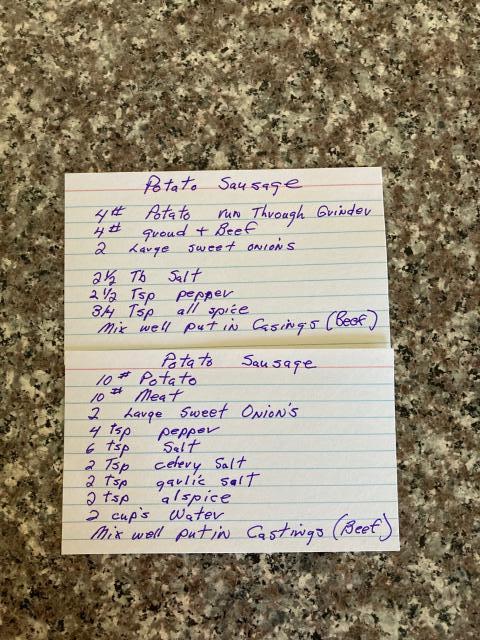 Potato Sausage
4# Potato run Through Grinder
4# groud + Beef
2 Large sweet onions
2 1/2 Tb Salt
2 1/2 Tsp pepper
3/4 Tsp all spice
Mix well put in Casings (Beef)
Potato Sausage
10# Potato
10# Meat
2 Large Sweet Onion's
4 tsp pepper
6 tsp Salt
2 Tsp celery Salt
2 tsp garlic salt
2 tsp alspice
2 cup's Water
Mix well put in Castings (Beef)